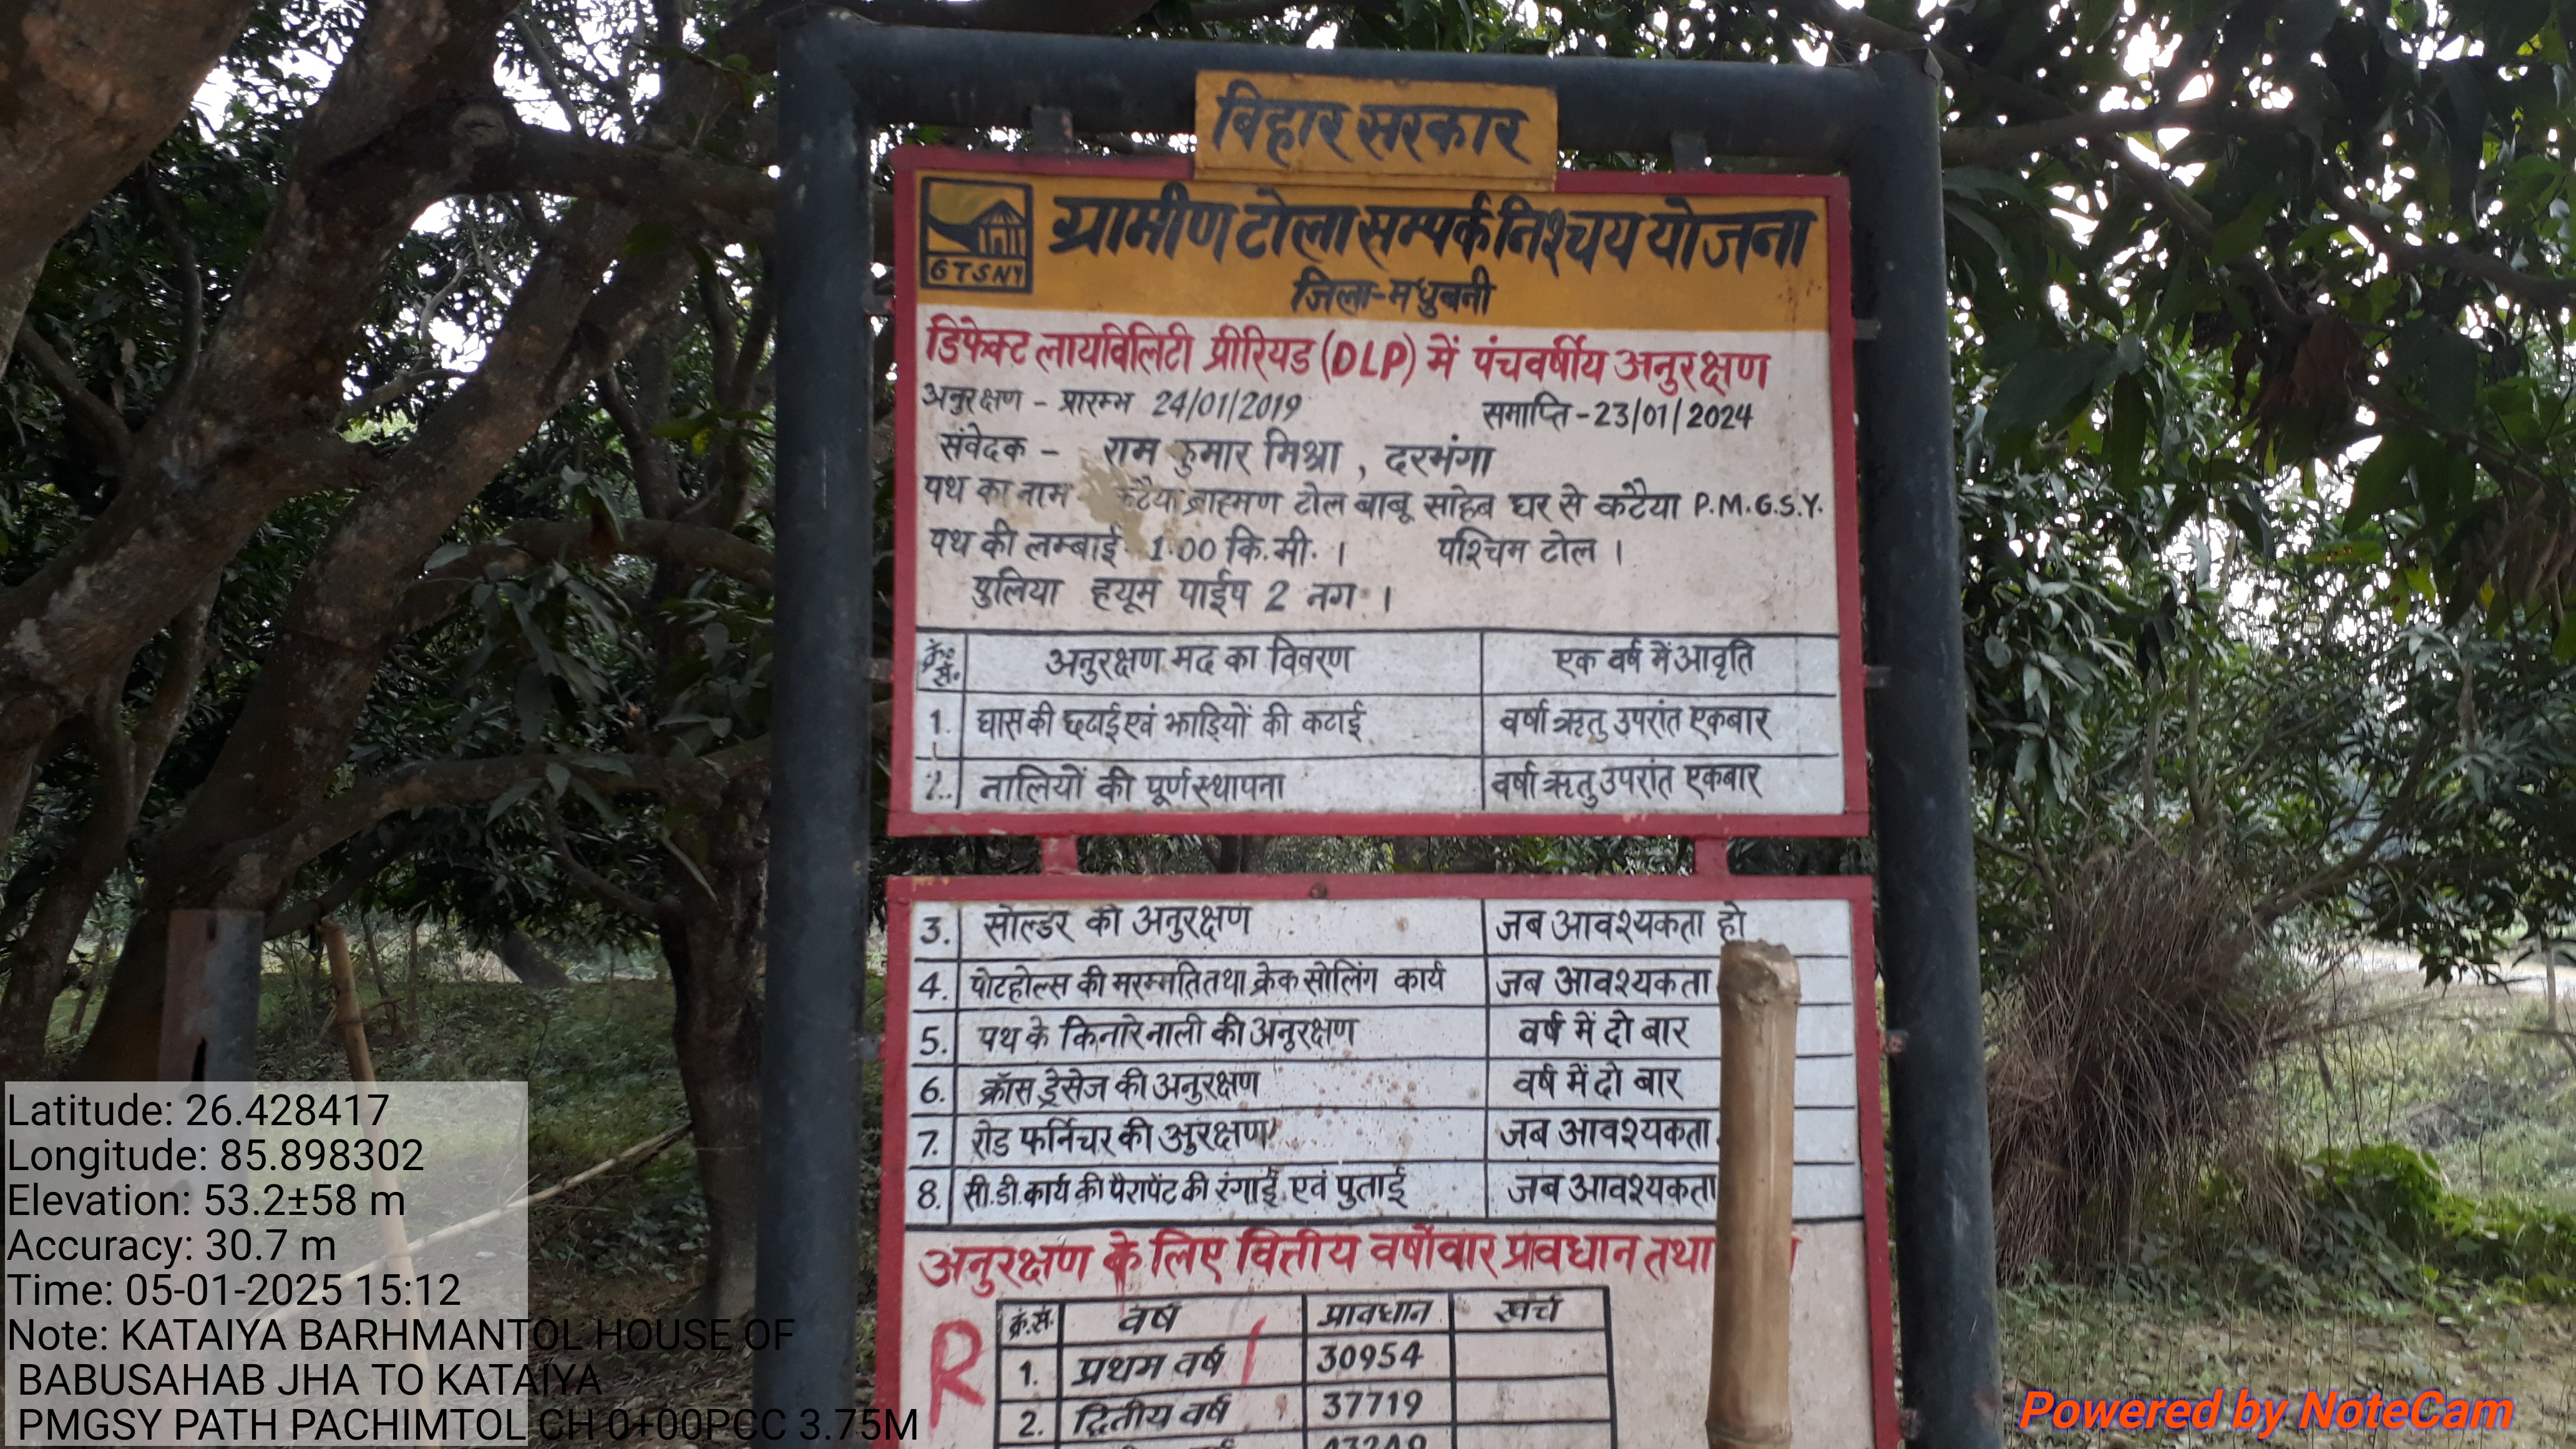 बिहार सरकार
ग्रामीण टोला सम्पर्क निश्चय योजना
GTSNY
जिला-मधुबनी
डिफेक्ट लायविलिटी प्रीरियड (DLP) में पंचवर्षीय अनुरक्षण
अनुरक्षण - प्रारम्भ 24/01/2019 समाप्ति - 23/01/2024
संवेदक - राम कुमार मिश्रा , दरभंगा
पथ का नाम कटैया ब्राह्मण टोल बाबू साहेब घर से कटैया P.M.G.S.Y.
पथ की लम्बाई 1.00 कि.मी. । पश्चिम टोल ।
पुलिया ह्यूम पाईप 2 नग ।
क्रं. सं. अनुरक्षण मद का विवरण एक वर्ष में आवृति
1. घास की छटाई एवं झाड़ियों की कटाई वर्षा ऋतु उपरांत एकबार
2. नालियों की पूर्णस्थापना वर्षा ऋतु उपरांत एकबार
3. सोल्डर का अनुरक्षण जब आवश्यकता हो
4. पोटहोल्स की मरम्मति तथा क्रेक सोलिंग कार्य जब आवश्यकता
5. पथ के किनारे नाली की अनुरक्षण वर्ष में दो बार
6. क्रॉस ड्रेसेज की अनुरक्षण वर्ष में दो बार
7. रोड फर्निचर की अुरक्षण जब आवश्यकता
8. सी.डी. कार्य की पैरापेंट की रंगाई एवं पुताई जब आवश्यकता
अनुरक्षण के लिए वित्तीय वर्षोवार प्रावधान तथा
R
क्रं.सं. वर्ष प्रावधान खर्च
1. प्रथम वर्ष 30954
2. द्वितीय वर्ष 37719
Latitude: 26.428417
Longitude: 85.898302
Elevation: 53.2±58 m
Accuracy: 30.7 m
Time: 05-01-2025 15:12
Note: KATAIYA BARHMANTOL HOUSE OF
BABUSAHAB JHA TO KATAIYA
PMGSY PATH PACHIMTOL CH 0+00PCC 3.75M
Powered by NoteCam